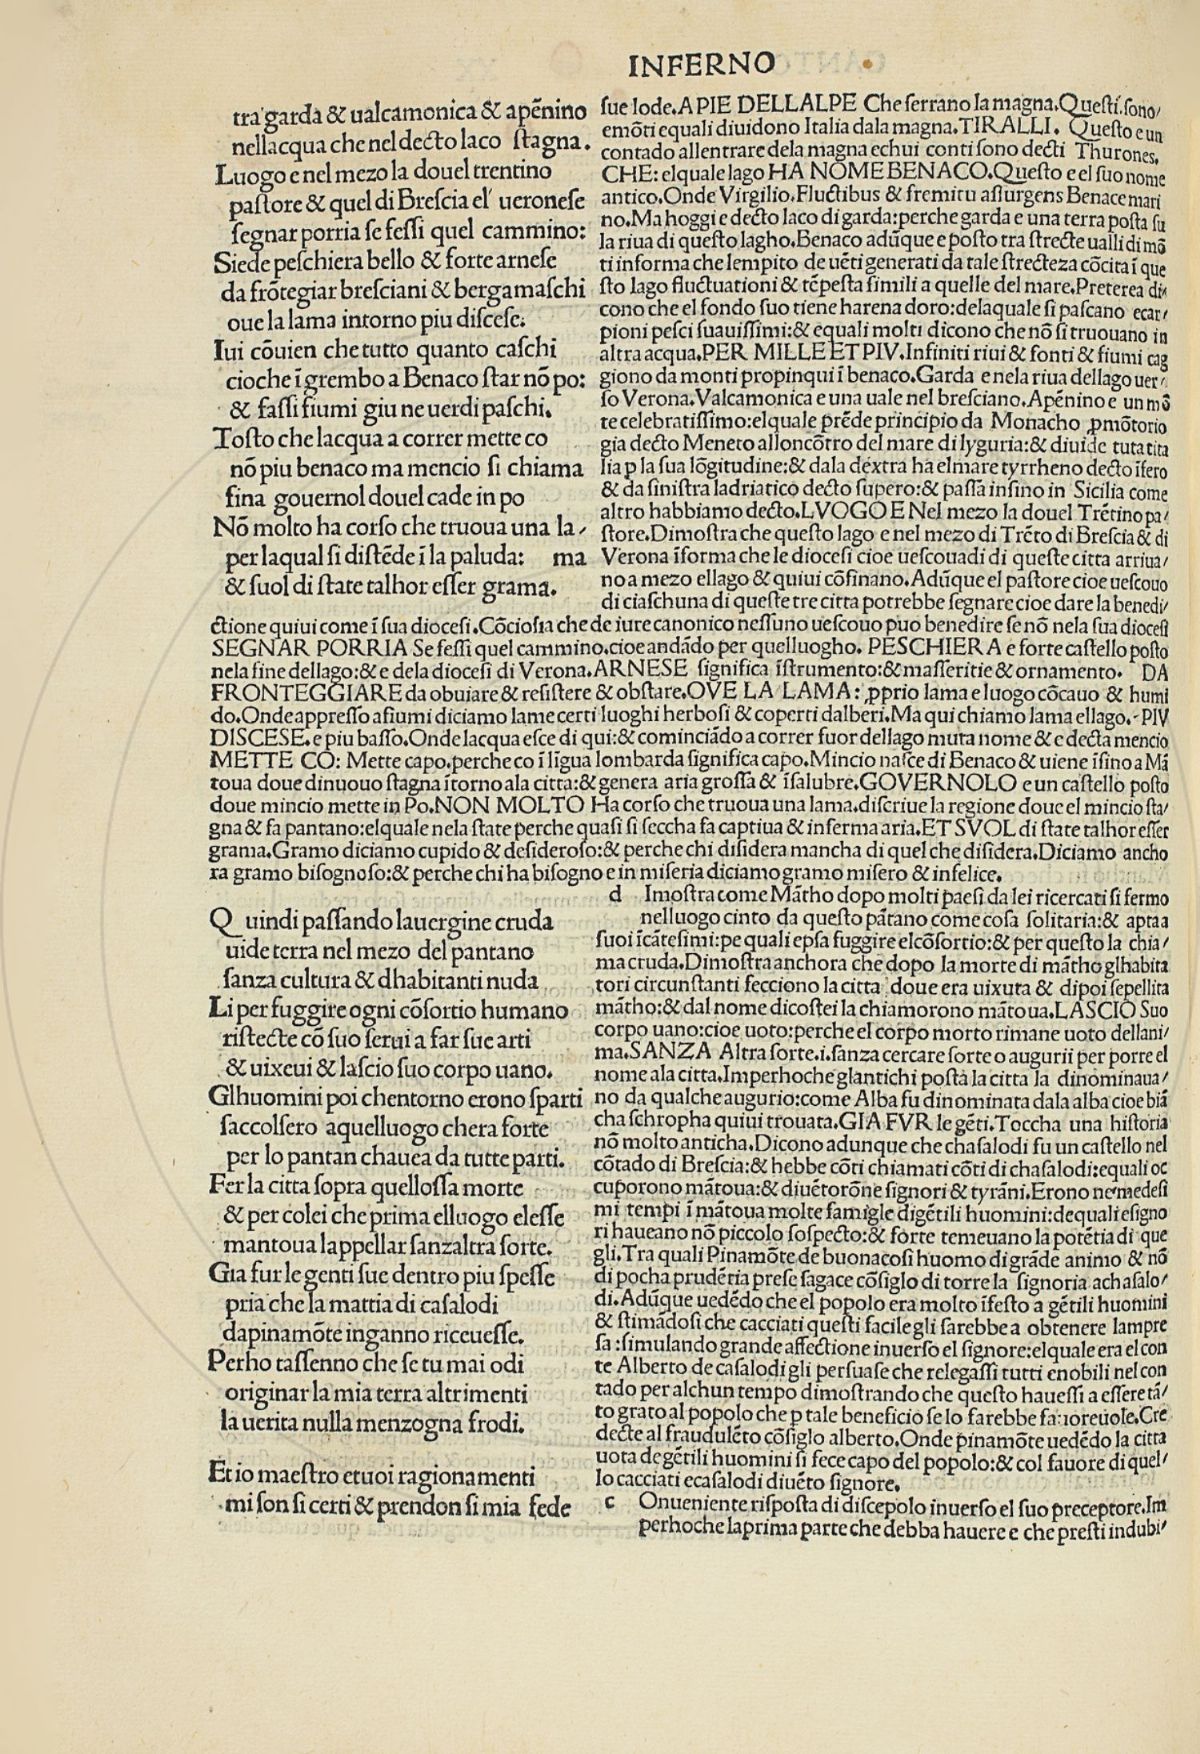 INFERNO
tra garda & ualcamonica & apēnino
nellacqua che nel decto laco stagna.
Luogo e nel mezo la douel trentino
pastore & quel di Brescia el ueronese
segnar porria se fessi quel cammino:
Siede peschiera bello & forte arnese
da frōtegiar bresciani & bergamaschi
oue la lama intorno piu discese.
Iui cōuien che tutto quanto caschi
cioche ī grembo a Benaco star nō po:
& fassi fiumi giu ne uerdi paschi.
Tosto che lacqua a correr mette co
nō piu benaco ma mencio si chiama
fina gouernol douel cade in po
Nō molto ha corso che truoua una la/
per laqual si distēde ī la paluda: ma
& suol di state talhor esser grama.
sue lode. A PIE DELLALPE Che serrano la magna. Questi sono/
emōti equali diuidono Italia dala magna. TIRALLI. Questo e un
contado allentrare dela magna echui conti sono decti Thurones.
CHE: elquale lago HA NOME BENACO. Questo e el suo nome
antico. Onde Virgilio. Fluctibus & fremitu assurgens Benace mari
no. Ma hoggi e decto laco di garda: perche garda e una terra posta su
la riua di questo lagho. Benaco adūque e posto tra strecte ualli di mō
ti informa che lempito de uēti generati da tale strecteza cōcita ī que
sto lago fluctuationi & tēpesta simili a quelle del mare. Preterea di/
cono che el fondo suo tiene harena doro: delaquale si pascano ecar/
pioni pesci suauissimi: & equali molti dicono che nō si truouano in
altra acqua. PER MILLE ET PIV. Infiniti riui & fonti & fiumi cag
giono da monti propinqui ī benaco. Garda e nela riua dellago uer/
so Verona. Valcamonica e una uale nel bresciano. Apēnino e un mō
te celebratissimo: elquale prēde principio da Monacho ꝓmōtorio
gia decto Meneto alloncōtro del mare di lyguria: & diuide tuta tita
lia p la sua lōgitudine: & dala dextra ha el mare tyrrheno decto īfero
& da sinistra ladriatico decto supero: & passa insino in Sicilia come
altro habbiamo decto. LVOGO E Nel mezo la douel Trētino pa/
store. Dimostra che questo lago e nel mezo di Trēto di Brescia & di
Verona īforma che le diocesi cioe uescouadi di queste citta arriua/
no a mezo ellago & quiui cōfinano. Adūque el pastore cioe uescouo
di ciaschuna di queste tre citta potrebbe segnare cioe dare la benedi/
ctione quiui come ī sua diocesi. Cōciosia che de iure canonico nessuno uescouo puo benedire se nō nela sua diocesi
SEGNAR PORRIA Se fessi quel cammino. cioe andādo per quelluogho. PESCHIERA e forte castello posto
nela fine dellago: & e dela diocesi di Verona. ARNESE significa īstrumento: & masseritie & ornamento. DA
FRONTEGGIARE da obuiare & resistere & obstare. OVE LA LAMA: ꝓprio lama e luogo cōcauo & humi
do. Onde appresso a fiumi diciamo lame certi luoghi herbosi & coperti dalberi. Ma qui chiamo lama ellago. PIV
DISCESE. e piu basso. Onde lacqua esce di qui: & cominciādo a correr fuor dellago muta nome & e decta mencio
METTE CO: Mette capo. perche co ī ligua lombarda significa capo. Mincio nasce di Benaco & uiene īsino a Mā
toua doue dinuouo stagna ītorno ala citta: & genera aria grossa & īsalubre. GOVERNOLO e un castello posto
doue mincio mette in Po. NON MOLTO Ha corso che truoua una lama. discriue la regione doue el mincio sta/
gna & fa pantano: elquale nela state perche quasi si seccha fa captiua & inferma aria. ET SVOL di state talhor esser
grama. Gramo diciamo cupido & desideroso: & perche chi disidera mancha di quel che disidera. Diciamo ancho
ra gramo bisognoso: & perche chi ha bisogno e in miseria diciamo gramo misero & infelice.
Quindi passando la uergine cruda
uide terra nel mezo del pantano
sanza cultura & dhabitanti nuda
Li per fuggire ogni cōsortio humano
ristecte cō suo serui a far sue arti
& uixeui & lascio suo corpo uano.
Glhuomini poi chentorno erono sparti
saccolsero aquelluogo chera forte
per lo pantan chauea da tutte parti.
Fer la citta sopra quellossa morte
& per colei che prima elluogo elesse
mantoua lappellar sanzaltra sorte.
Gia fur le genti sue dentro piu spesse
pria che la mattia di casalodi
dapinamōte inganno riceuesse.
Perho tassenno che se tu mai odi
originar la mia terra altrimenti
la uerita nulla menzogna frodi.
Et io maestro etuoi ragionamenti
mi son si certi & prendon si mia fede
d Imostra come Mātho dopo molti paesi da lei ricercati si fermo
nelluogo cinto da questo pātano come cosa solitaria: & apta a
suoi īcātesimi: pe quali epsa fuggire el cōsortio: & per questo la chia/
ma cruda. Dimostra anchora che dopo la morte di mātho glhabita
tori circunstanti fecciono la citta doue era uixuta & dipoi sepellita
mātho: & dal nome di costei la chiamorono mātoua. LASCIO Suo
corpo uano: cioe uoto: perche el corpo morto rimane uoto dellani/
ma. SANZA Altra sorte .i. sanza cercare sorte o augurii per porre el
nome ala citta. Imperhoche glantichi posta la citta la dinominaua/
no da qualche augurio: come Alba fu dinominata dala alba cioe biā
cha schropha quiui trouata. GIA FVR le gēti. Toccha una historia
nō molto anticha. Dicono adunque che chasalodi fu un castello nel
cōtado di Brescia: & hebbe cōti chiamati cōti di chasalodi: equali oc
cuporono mātoua: & diuētorōne signori & tyrāni. Erono ne medesi
mi tempi ī mātoua molte famigle di gētili huomini: dequali esigno
ri haueano nō piccolo sospecto: & forte temeuano la potētia di que
gli. Tra quali Pinamōte de buonacosi huomo di grāde animo & nō
di pocha prudētia prese sagace cōsiglo di torre la signoria a chasalo/
di. Adūque uedēdo che el popolo era molto īfesto a gētili huomini
& stimādosi che cacciati questi facile gli sarebbe a obtenere lampre
sa: simulando grande affectione inuerso el signore: elquale era el con
te Alberto de casalodi gli persuase che relegassi tutti enobili nel con
tado per alchun tempo dimostrando che questo hauessi a essere tā/
to grato al popolo che p tale beneficio se lo farebbe fauoreuole. Cre
decte al fraudulēto cōsiglo alberto. Onde pinamōte uedēdo la citta
uota de gētili huomini si fece capo del popolo: & col fauore di quel/
lo cacciati ecasalodi diuēto signore.
c Onueniente risposta di discepolo inuerso el suo preceptore. Im
perhoche la prima parte che debba hauere e che presti indubi/